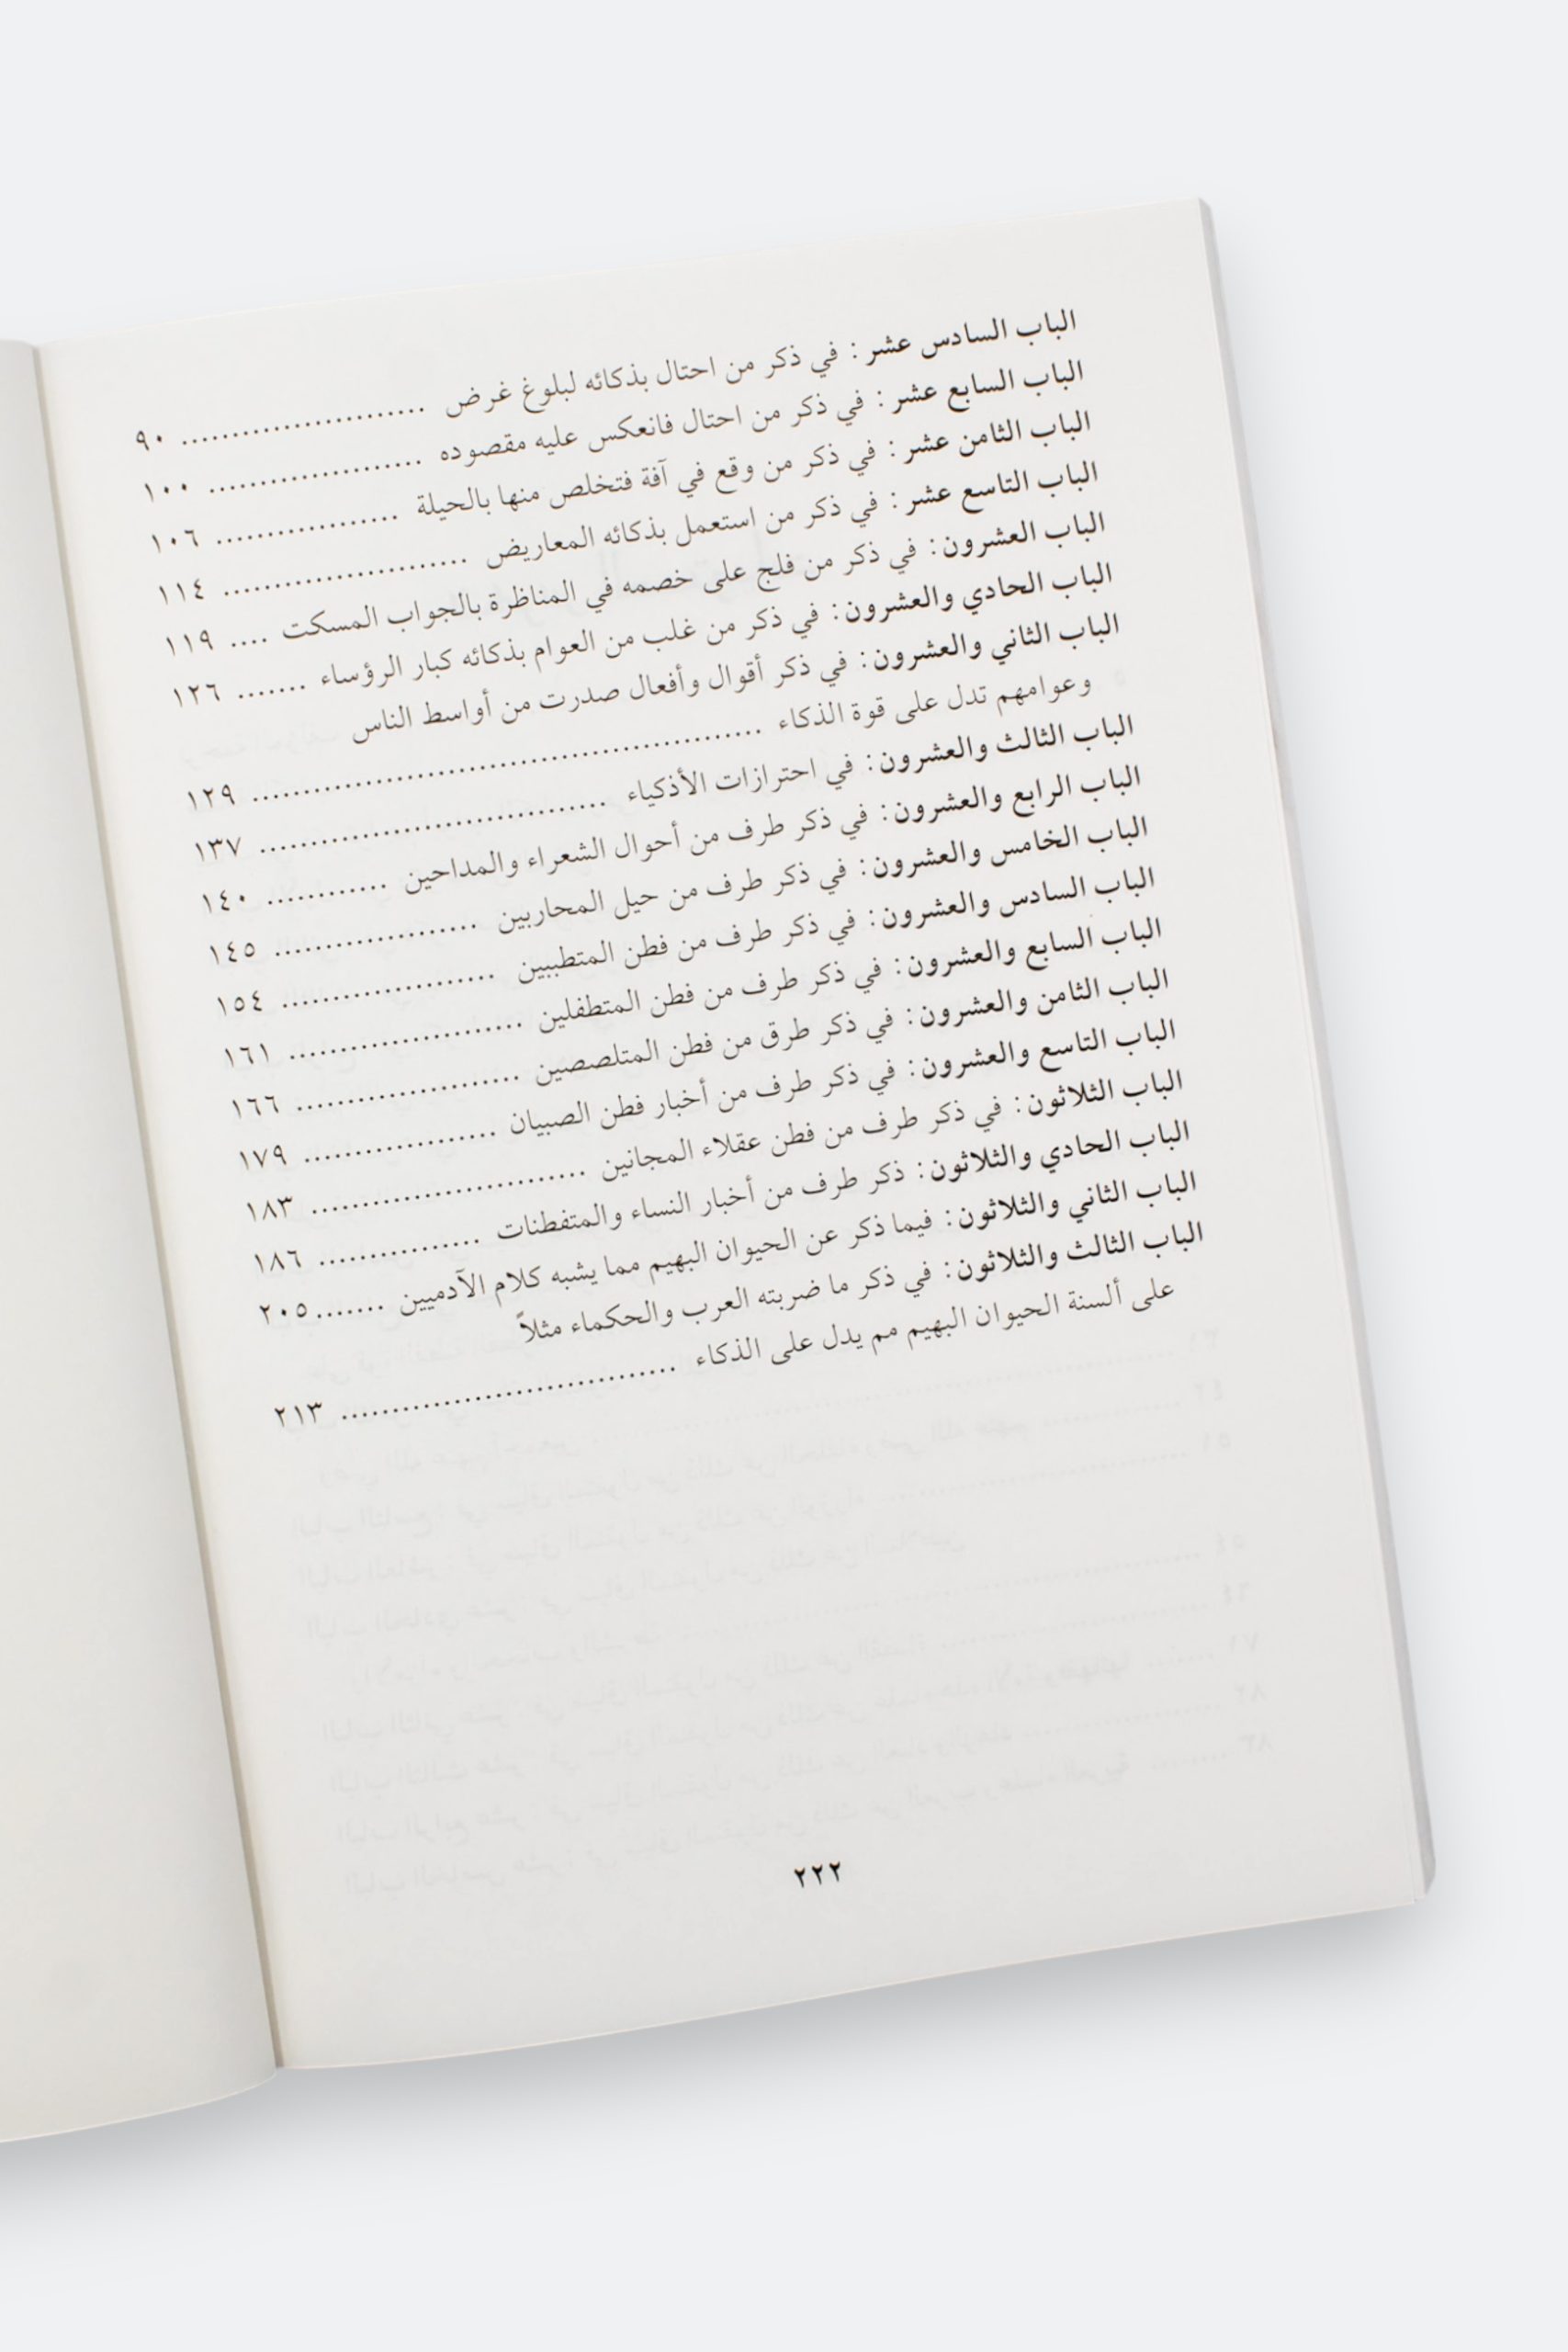 الباب السادس عشر : في ذكر من احتال بذكائه لبلوغ غرض ........................ ٩٠
الباب السابع عشر : في ذكر من احتال فانعكس عليه مقصوده ..................... ١٠٠
الباب الثامن عشر : في ذكر من وقع في آفة فتخلص منها بالحيلة .................. ١٠٦
الباب التاسع عشر : في ذكر من استعمل بذكائه المعاريض ........................ ١١٤
الباب العشرون: في ذكر من فلج على خصمه في المناظرة بالجواب المسكت .... ١١٩
الباب الحادي والعشرون: في ذكر من غلب من العوام بذكائه كبار الرؤساء ....... ١٢٦
الباب الثاني والعشرون: في ذكر أقوال وأفعال صدرت من أواسط الناس
وعوامهم تدل على قوة الذكاء .................................................. ١٢٩
الباب الثالث والعشرون: في احترازات الأذكياء .................................. ١٣٧
الباب الرابع والعشرون: في ذكر طرف من أحوال الشعراء والمداحين ............ ١٤٠
الباب الخامس والعشرون: في ذكر طرف من حيل المحاربين .................... ١٤٥
الباب السادس والعشرون: في ذكر طرف من فطن المتطببين ..................... ١٥٤
الباب السابع والعشرون: في ذكر طرف من فطن المتطفلين ....................... ١٦١
الباب الثامن والعشرون: في ذكر طرق من فطن المتلصصين ...................... ١٦٦
الباب التاسع والعشرون: في ذكر طرف من أخبار فطن الصبيان ................... ١٧٩
الباب الثلاثون: في ذكر طرف من فطن عقلاء المجانين ........................... ١٨٣
الباب الحادي والثلاثون: ذكر طرف من أخبار النساء والمتفطنات ................ ١٨٦
الباب الثاني والثلاثون: فيما ذكر عن الحيوان البهيم مما يشبه كلام الآدميين ....... ٢٠٥
الباب الثالث والثلاثون: في ذكر ما ضربته العرب والحكماء مثلاً
على ألسنة الحيوان البهيم مم يدل على الذكاء ................................. ٢١٣
٢٢٢